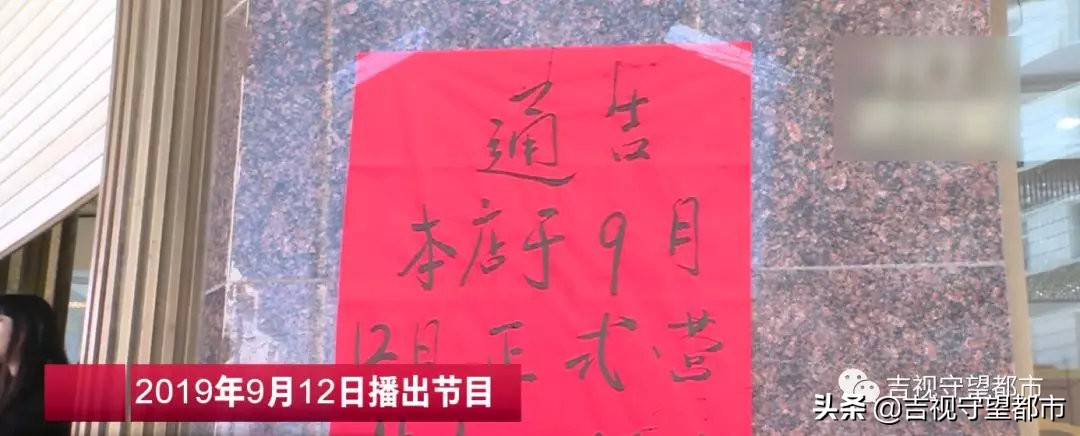 通告
本店于9月
12日正式营
2019年9月12日播出节目
吉视守望都市
头条@吉视守望都市